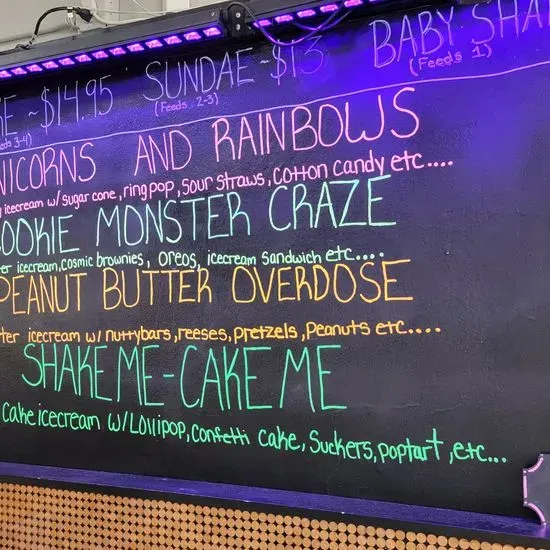 ~$14.95 SUNDAE ~$13 BABY SHA
(Feeds 2-3) (Feeds 1)
NICORNS AND RAINBOWS
icecream w/ sugar cone, ring pop, sour straws, cotton candy etc....
OOKIE MONSTER CRAZE
icecream, cosmic brownies, oreos, icecream sandwich etc....
PEANUT BUTTER OVERDOSE
icecream w/ nuttybars, reeses, pretzels, peanuts etc....
SHAKE ME-CAKE ME
Cake icecream w/ Lollipop, confetti cake, Suckers, poptart, etc...